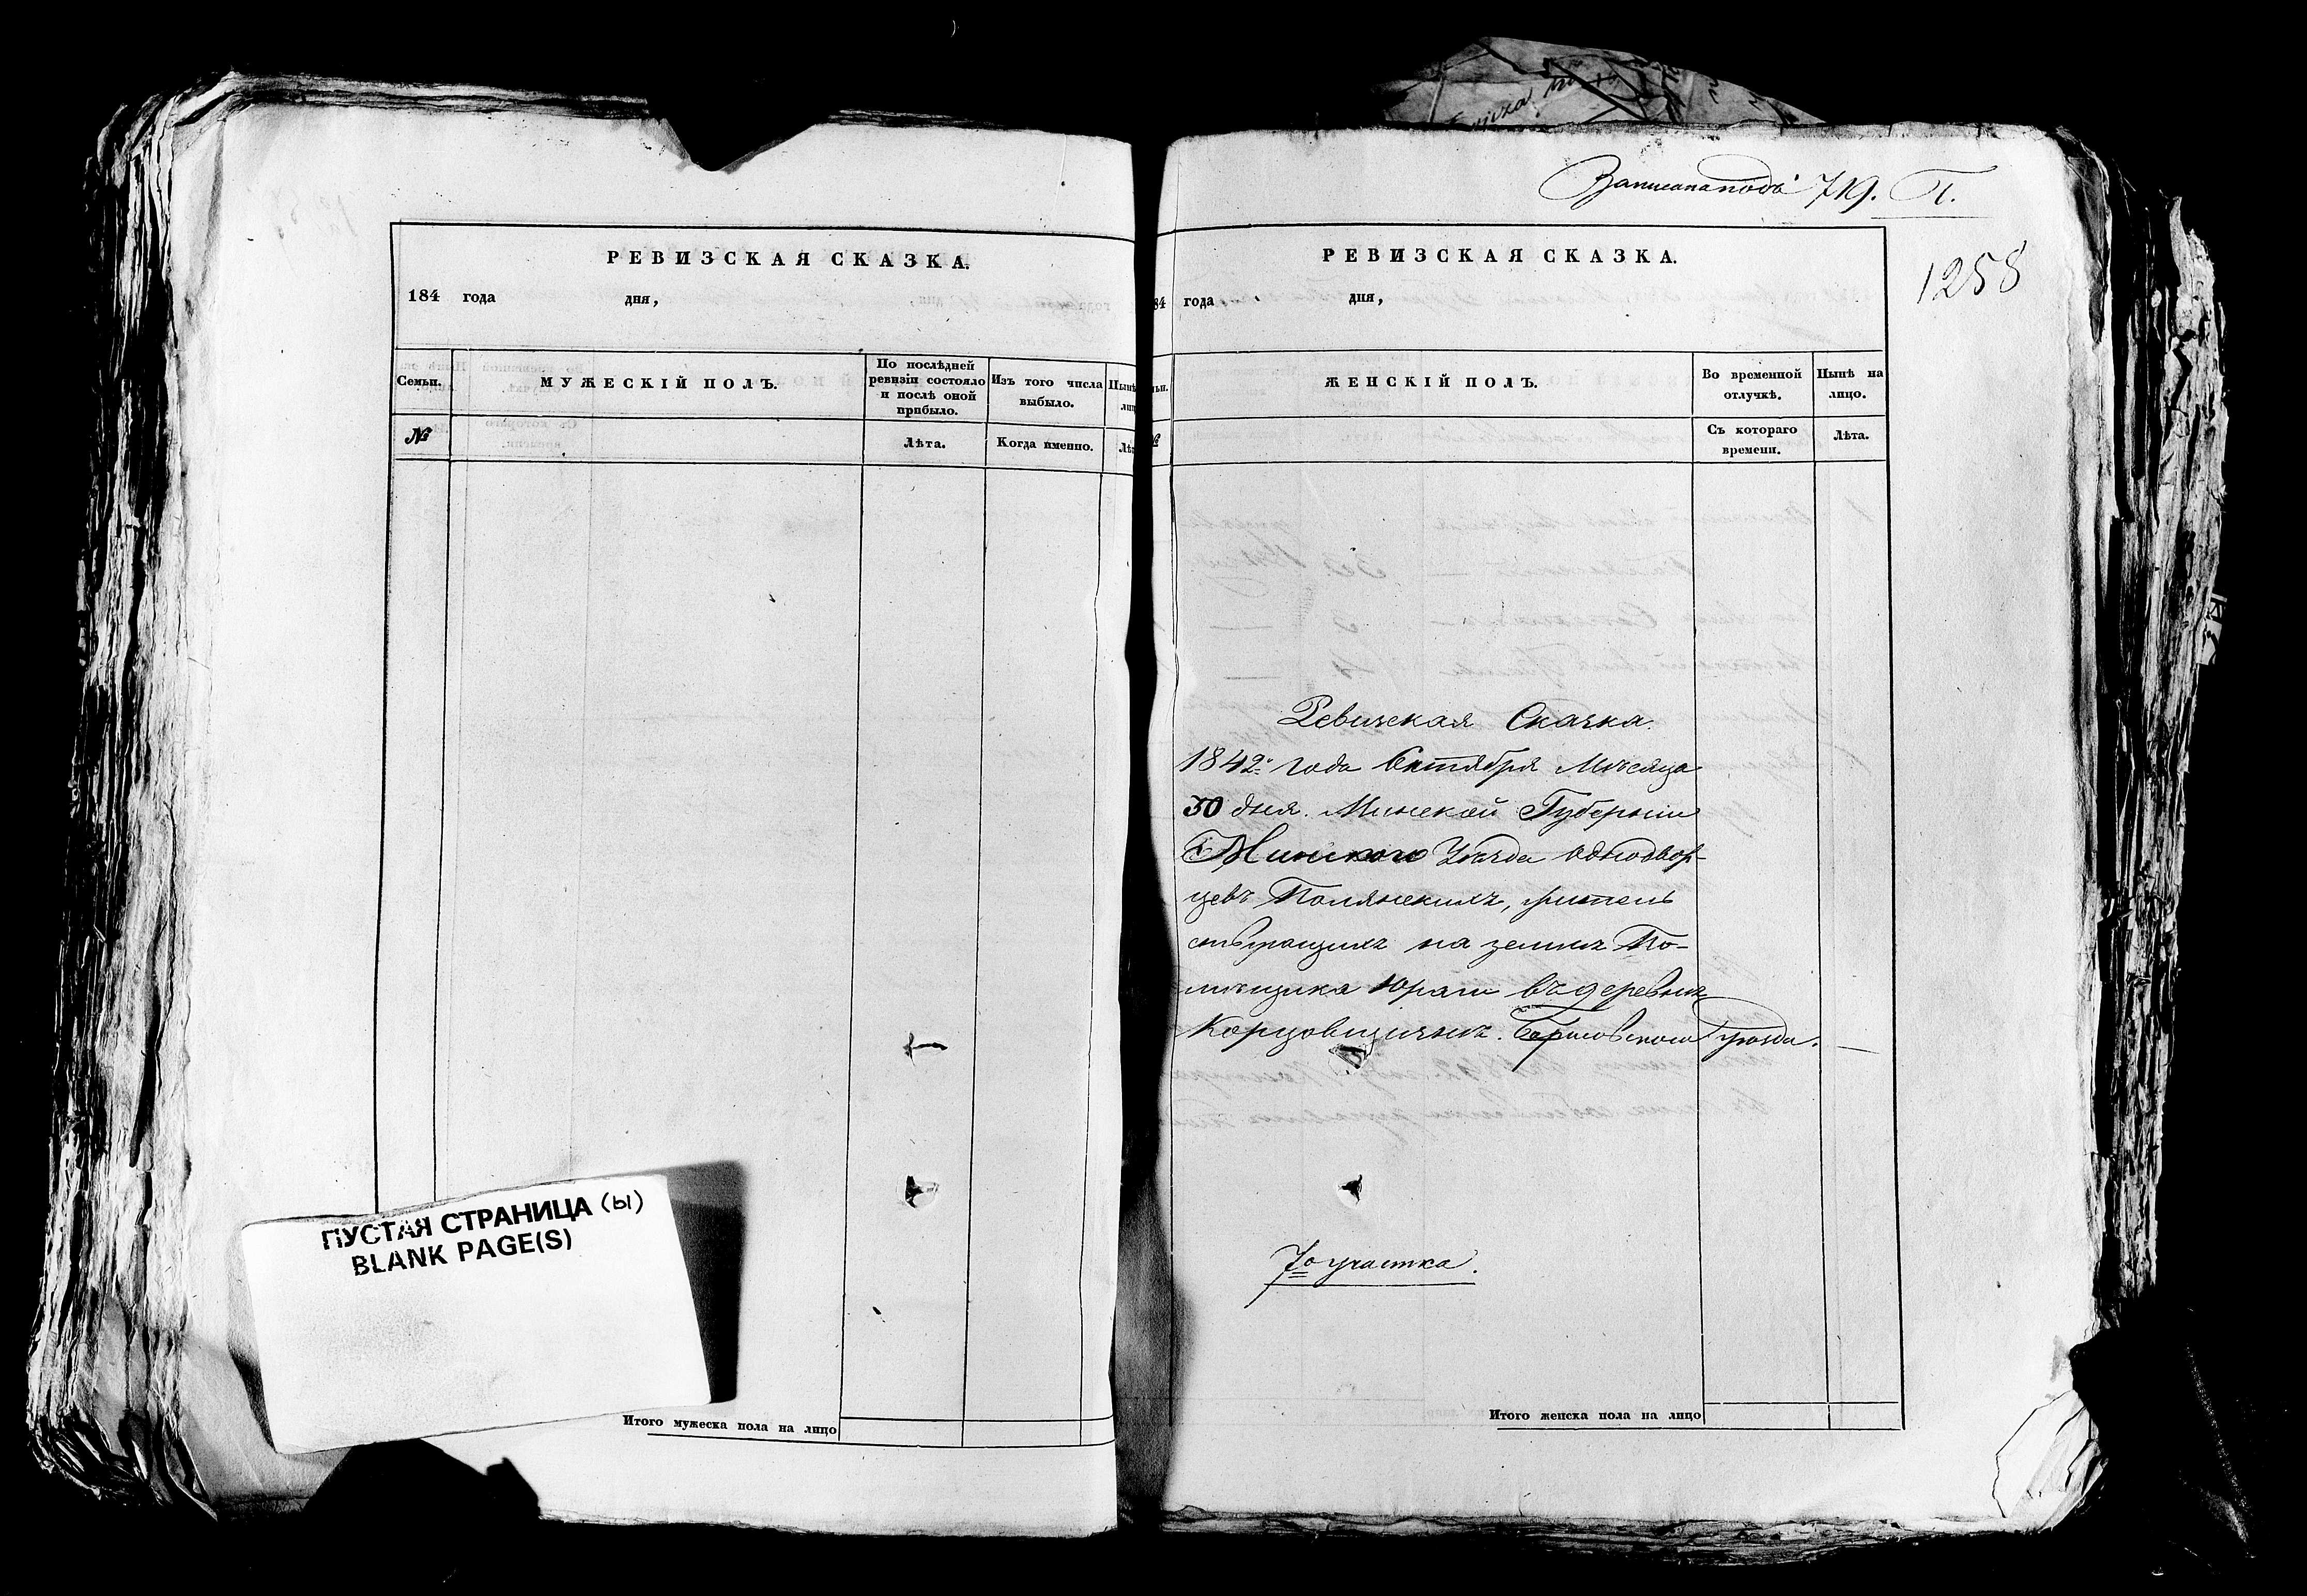 РЕВИЗСКАЯ СКАЗКА.
184 года дня,
Семьи.
МУЖЕСКІЙ ПОЛЪ.
По послѣдней
ревизіи состояло
и послѣ оной
прибыло.
Изъ того числа
выбыло.
№
Лѣта.
Когда именно.
ПУСТАЯ СТРАНИЦА (ы)
BLANK PAGE(S)
Итого мужеска пола на лицо
Записана подъ 719. П.
1258
РЕВИЗСКАЯ СКАЗКА.
84 года дня,
ЖЕНСКІЙ ПОЛЪ.
Во временной
отлучкѣ.
Нынѣ на
лицо.
Съ котораго
времени.
Лѣта.
Ревизская Сказка.
1842 года Октября Мѣсяца
30 дня. Минской Губерніи
Минского Уѣзда однодвор-
цевъ Полянскихъ, житель
ствующихъ на землѣ По-
мѣщика Юраги въ деревнѣ
Корцовищизнѣ. Борисовского уѣзда.
7го участка.
Итого женска пола на лицо